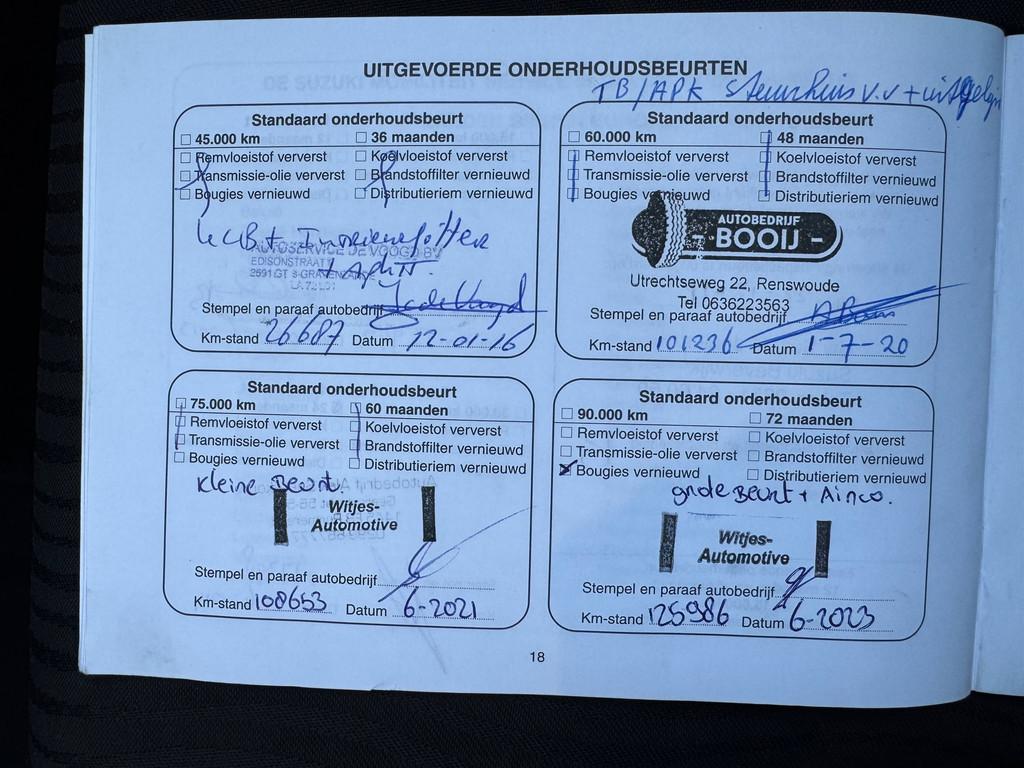 UITGEVOERDE ONDERHOUDSBEURTEN
TB/APK stuurhuis v.v + uitgelijn
Standaard onderhoudsbeurt
45.000 km 36 maanden
Remvloeistof ververst Koelvloeistof ververst
Transmissie-olie ververst Brandstoffilter vernieuwd
Bougies vernieuwd Distributieriem vernieuwd
AUTOSERVICE DE VOOGD BV
EDISONSTRAAT
2691GT 'S-GRAVENZANDE
Stempel en paraaf autobedrijf
Km-stand 26687 Datum 12-01-16
Standaard onderhoudsbeurt
60.000 km 48 maanden
Remvloeistof ververst Koelvloeistof ververst
Transmissie-olie ververst Brandstoffilter vernieuwd
Bougies vernieuwd Distributieriem vernieuwd
AUTOBEDRIJF
- BOOIJ -
Utrechtseweg 22, Renswoude
Tel 0636223563
Stempel en paraaf autobedrijf
Km-stand 101236 Datum 1-7-20
Standaard onderhoudsbeurt
75.000 km 60 maanden
Remvloeistof ververst Koelvloeistof ververst
Transmissie-olie ververst Brandstoffilter vernieuwd
Bougies vernieuwd Distributieriem vernieuwd
kleine Beurt.
Witjes-
Automotive
Stempel en paraaf autobedrijf
Km-stand 108653 Datum 6-2021
Standaard onderhoudsbeurt
90.000 km 72 maanden
Remvloeistof ververst Koelvloeistof ververst
Transmissie-olie ververst Brandstoffilter vernieuwd
Bougies vernieuwd Distributieriem vernieuwd
grote Beurt + Airco.
Witjes-
Automotive
Stempel en paraaf autobedrijf
Km-stand 125986 Datum 6-2023
18